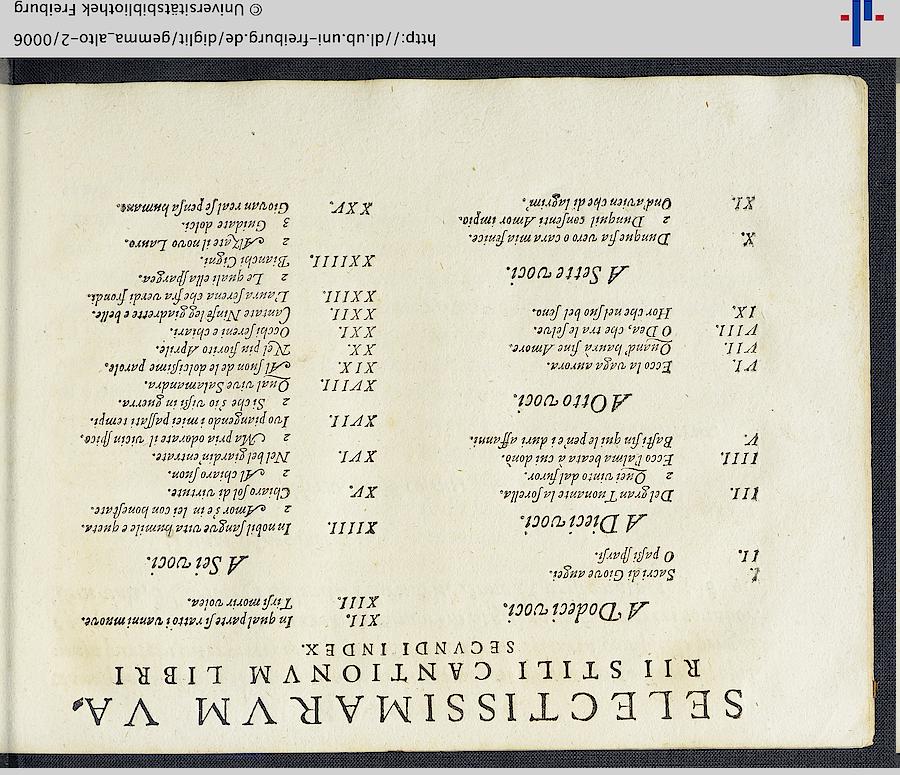 SELECTISSIMARVM VA
RII STILI CANTIONVM LIBRI
SECVNDI INDEX.
A Dodeci voci.
I. Sacri di Giove augei
II. O passi sparsi.
A Dieci voci.
III. Del gran Tuonante la sorella.
2 Quei vinto dal furor.
IIII. Ecco l'alma beata à cui donò.
V. Basti fin qui le pen'e i duri affanni.
A Otto voci.
VI. Ecco la vaga aurora.
VII. Quand' haurà fine Amore.
VIII. O Dea, che tra le selve.
IX. Hor che nel suo bel seno.
A Sette voci.
X. Dunque fia vero o cara mia fenice.
2 Dunqu il consenti Amor impio.
XI. Ond' avien che di lagrim'.
XII. In qual parte si ratto i vanni move.
XIII. Tirsi morir volea.
A Sei voci.
XIIII. In nobil sangue vita humile e queta.
2 Amor s'è in lei con honestate.
XV. Chiaro sol di virtute.
2 Al chiaro suon.
XVI. Nel bel giardin entrate.
2 Ma pria odorate il vicin spico.
XVII. Ivo piangendo i miei passati tempi.
2 Si che s'io vissi in guerra.
XVIII. Qual vive Salamandra.
XIX. Al suon de le dolcissime parole.
XX. Nel piu fiorito Aprile.
XXI. Occhi sereni e chiari.
XXII. Cantate Ninfe leggiadrette e belle.
XXIII. L'aura serena che fra verdi frondi.
2 Le quali ella spargea.
XXIIII. Bianchi Cigni.
2 Alzate il novo Lauro.
3 Guidate dolci.
XXV. Giovan real se pensa humano.
http://dl.ub.uni-freiburg.de/diglit/gemma_alto-2/0006
© Universitätsbibliothek Freiburg